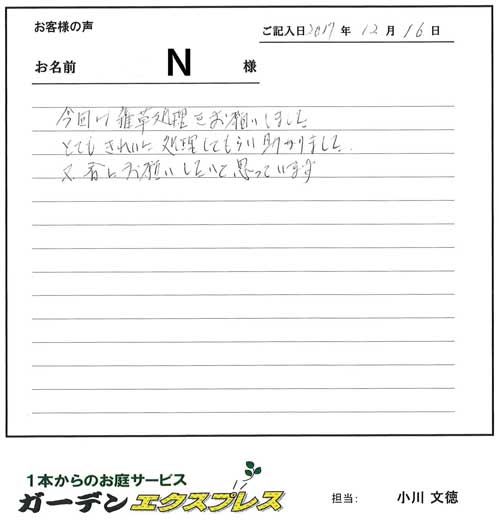 お客様の声
ご記入日2017年12月16日
お名前 N 様
今回は雑草処理をお願いしました
とてもきれいに処理してもらい助かりました.
又春にお願いしたいと思っています
1本からのお庭サービス
ガーデンエクスプレス
担当: 小川 文徳